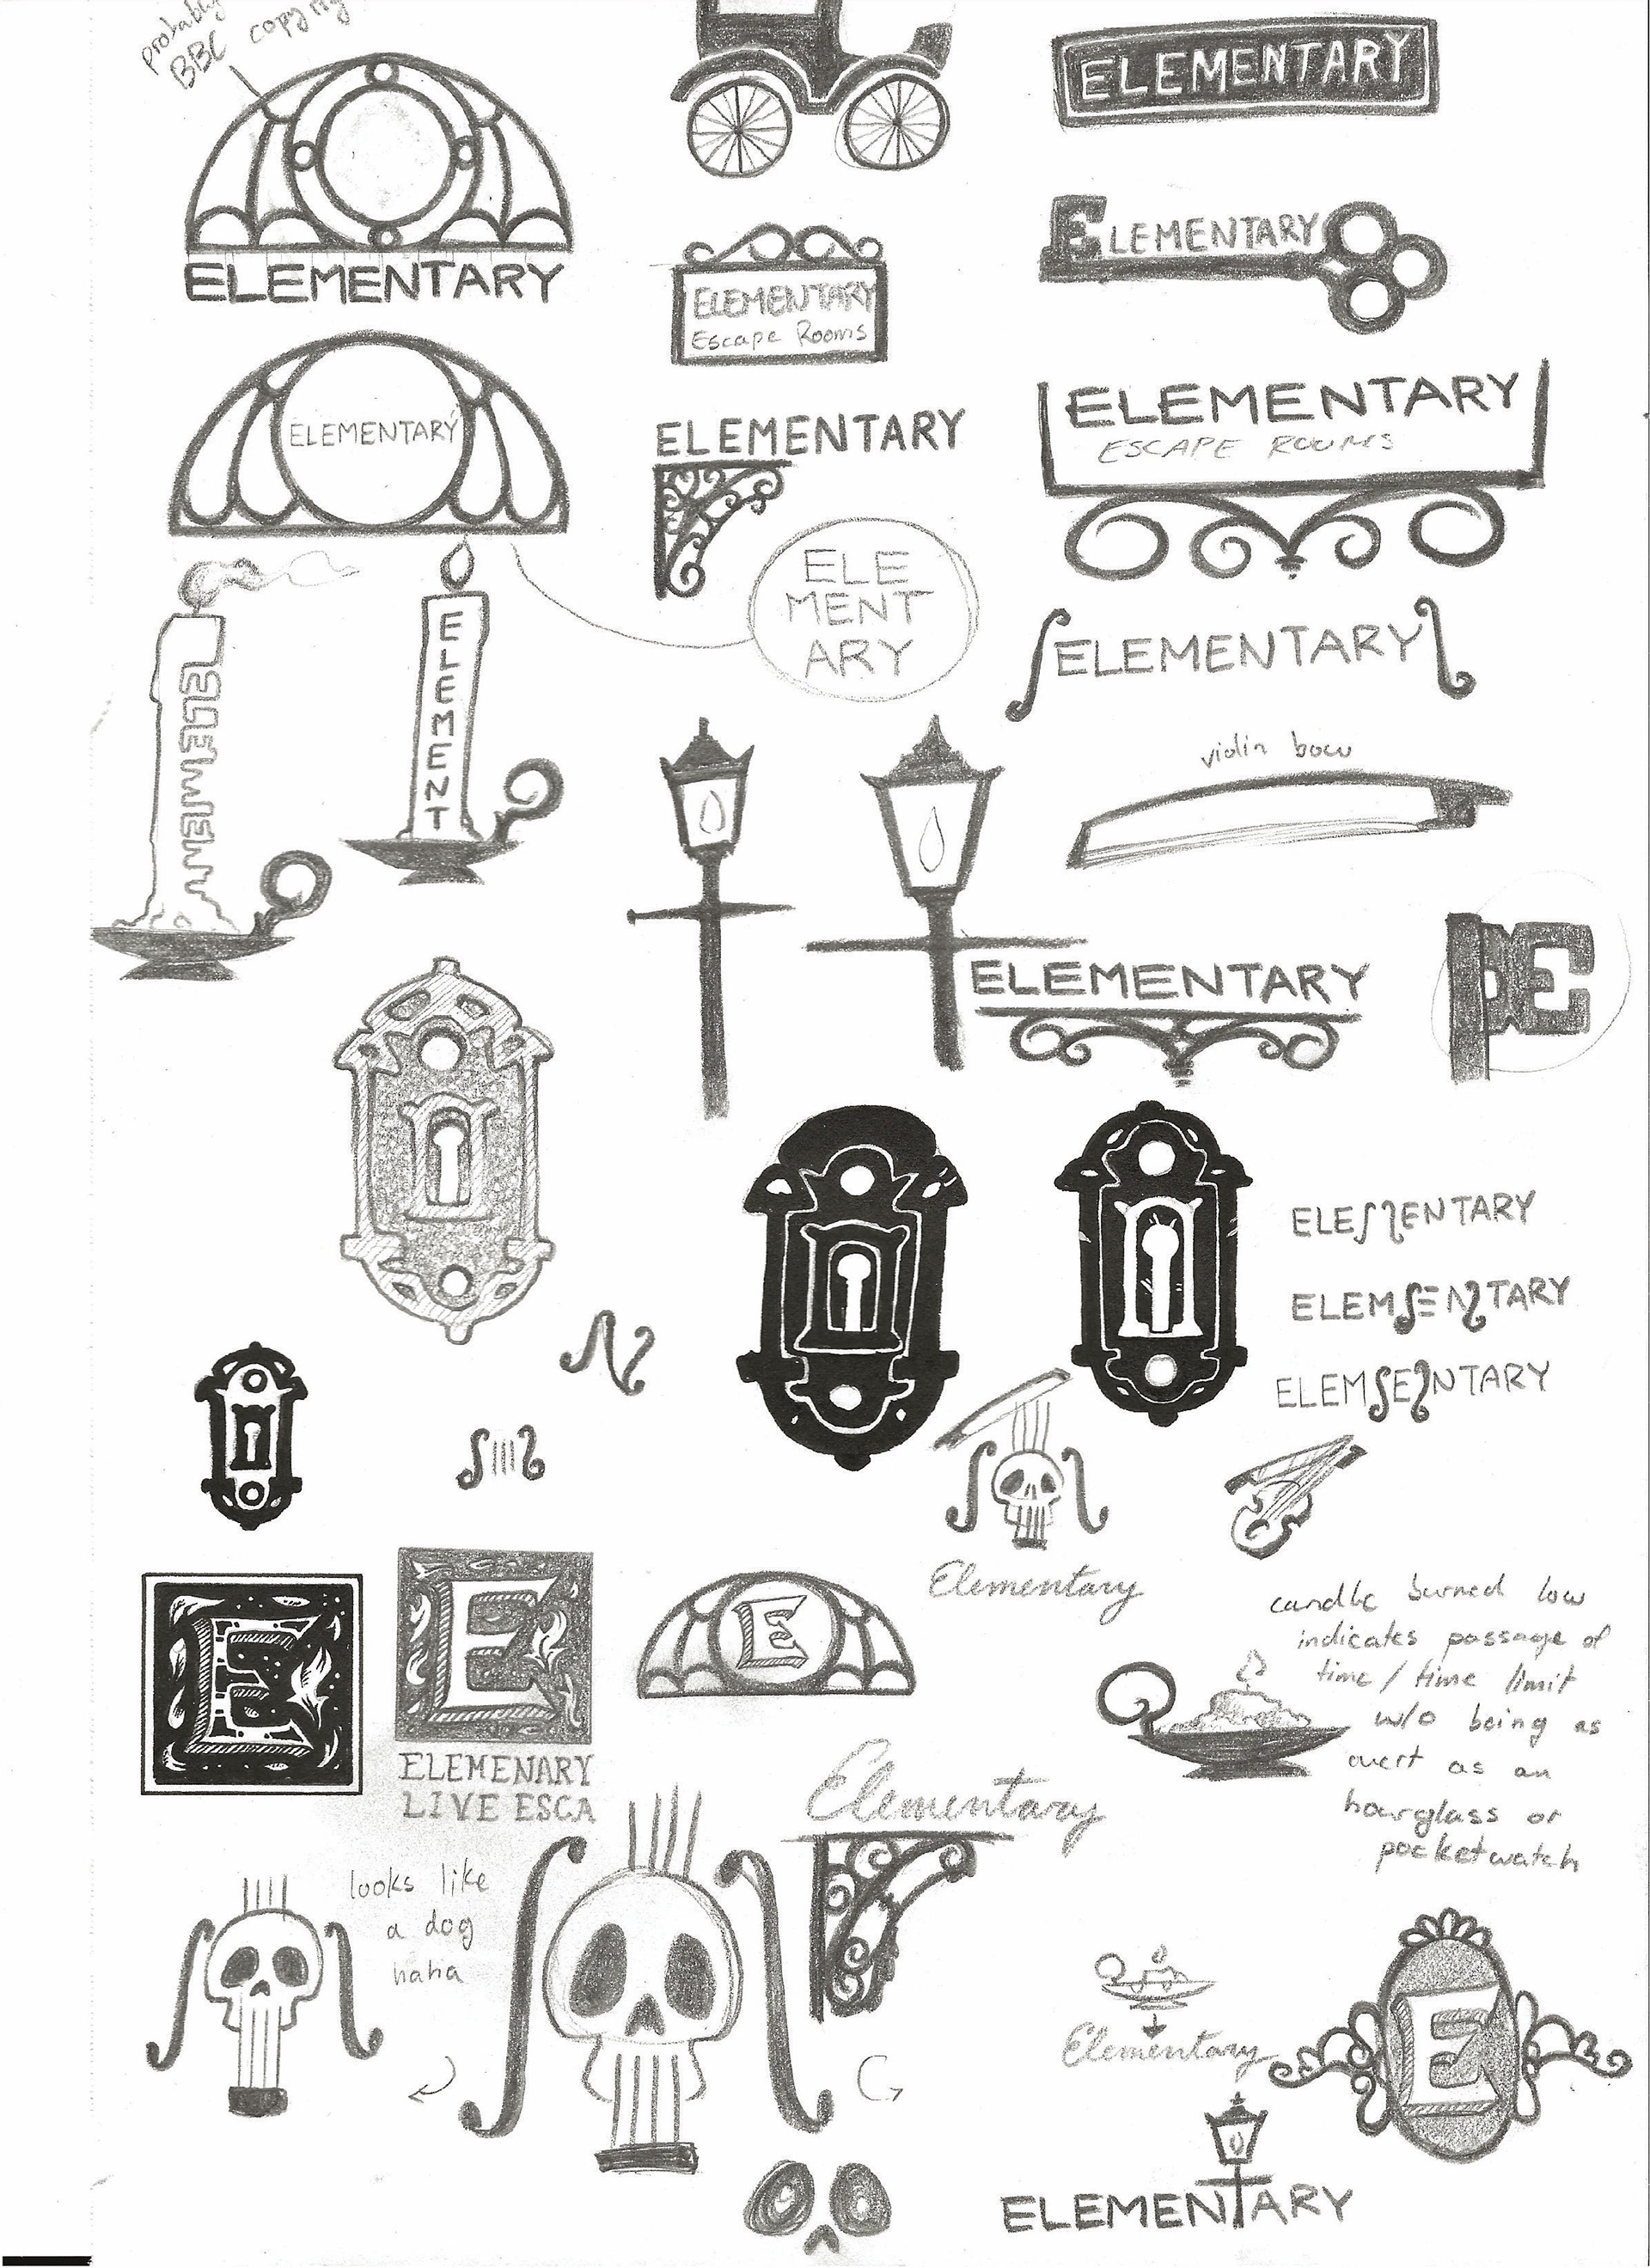 probably
BBC copy
ELEMENTARY
ELEMENTARY
ELEMENTARY
Escape Rooms
ELEMENTARY
ELEMENTARY
ELEMENTARY
ESCAPE ROOMS
ELEMENTARY
ELEMENTARY
ELE
MENT
ARY
ELEMENTARY
ELEMENT
violin bow
ELEMENTARY
E
ELEMENTARY
ELEMENTARY
ELEMENTARY
Elementary
E
E
ELEMENARY
LIVE ESCA
E
candle burned low
indicates passage of
time / time limit
w/o being as
overt as an
hourglass or
pocketwatch
Elementary
looks like
a dog
haha
Elementary
E
ELEMENTARY